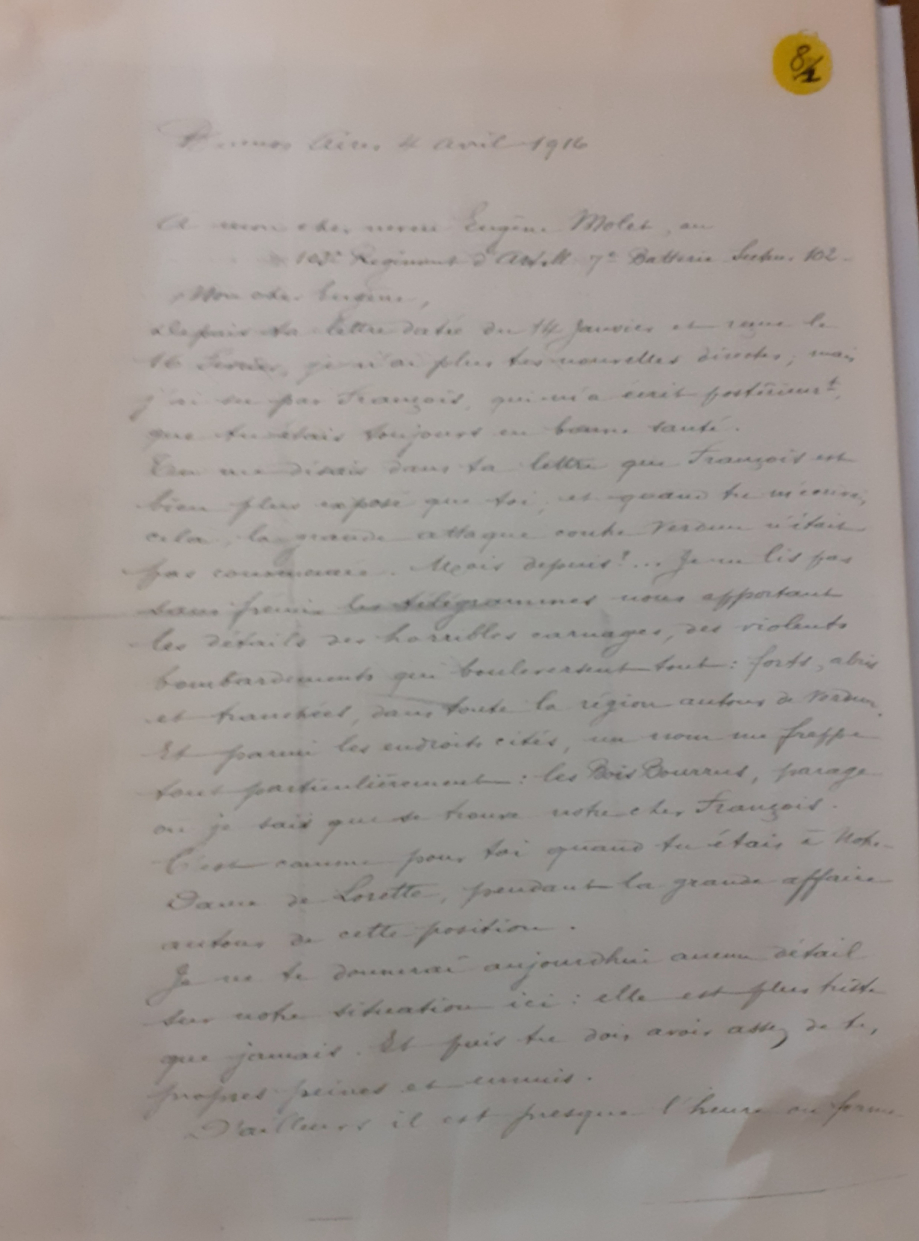 8/1
Buenos Aires 4 Avril 1916
A mon cher neveu Eugène Molet, au
103e Régiment d'Artill 7e Batterie Secteur 102.
Mon cher Eugène,
Depuis ta lettre datée du 14 Janvier et reçue le
16 Février, je n'ai plus tes nouvelles directes; mais
j'ai su par François, qui m'a écrit postérieurt,
que tu étais toujours en bonne santé.
Tu me disais dans ta lettre que François est
bien plus exposé que toi, et quand tu m'écrivis
cela, la grande attaque contre Verdun n'était
pas commencée. Mais depuis?... Je ne lis pas
sans frémir les télégrammes nous apportant
les détails des horribles carnages, des violents
bombardements qui bouleversent tout: forts, abris
et tranchées, dans toute la région autour de Verdun.
Et parmi les endroits cités, un nom me frappe
tout particulièrement: les Bois Bourrus, parage
où je sais que se trouve notre cher François.
C'est comme pour toi quand tu étais à Notre-
Dame de Lorette, pendant la grande affaire
autour de cette position.
Je ne te donnerai aujourdhui aucun détail
sur notre situation ici: elle est plus triste
que jamais. Et puis tu dois avoir assez de tes
propres peines et ennuis.
D'ailleurs il est presque l'heure où ferme